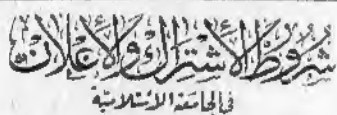 شُرُوطُ الْاِشْتِرَاكِ وَالْاِعْلَانِ
فِي الْجَامِعَةِ الْاِسْلَامِيَّةِ